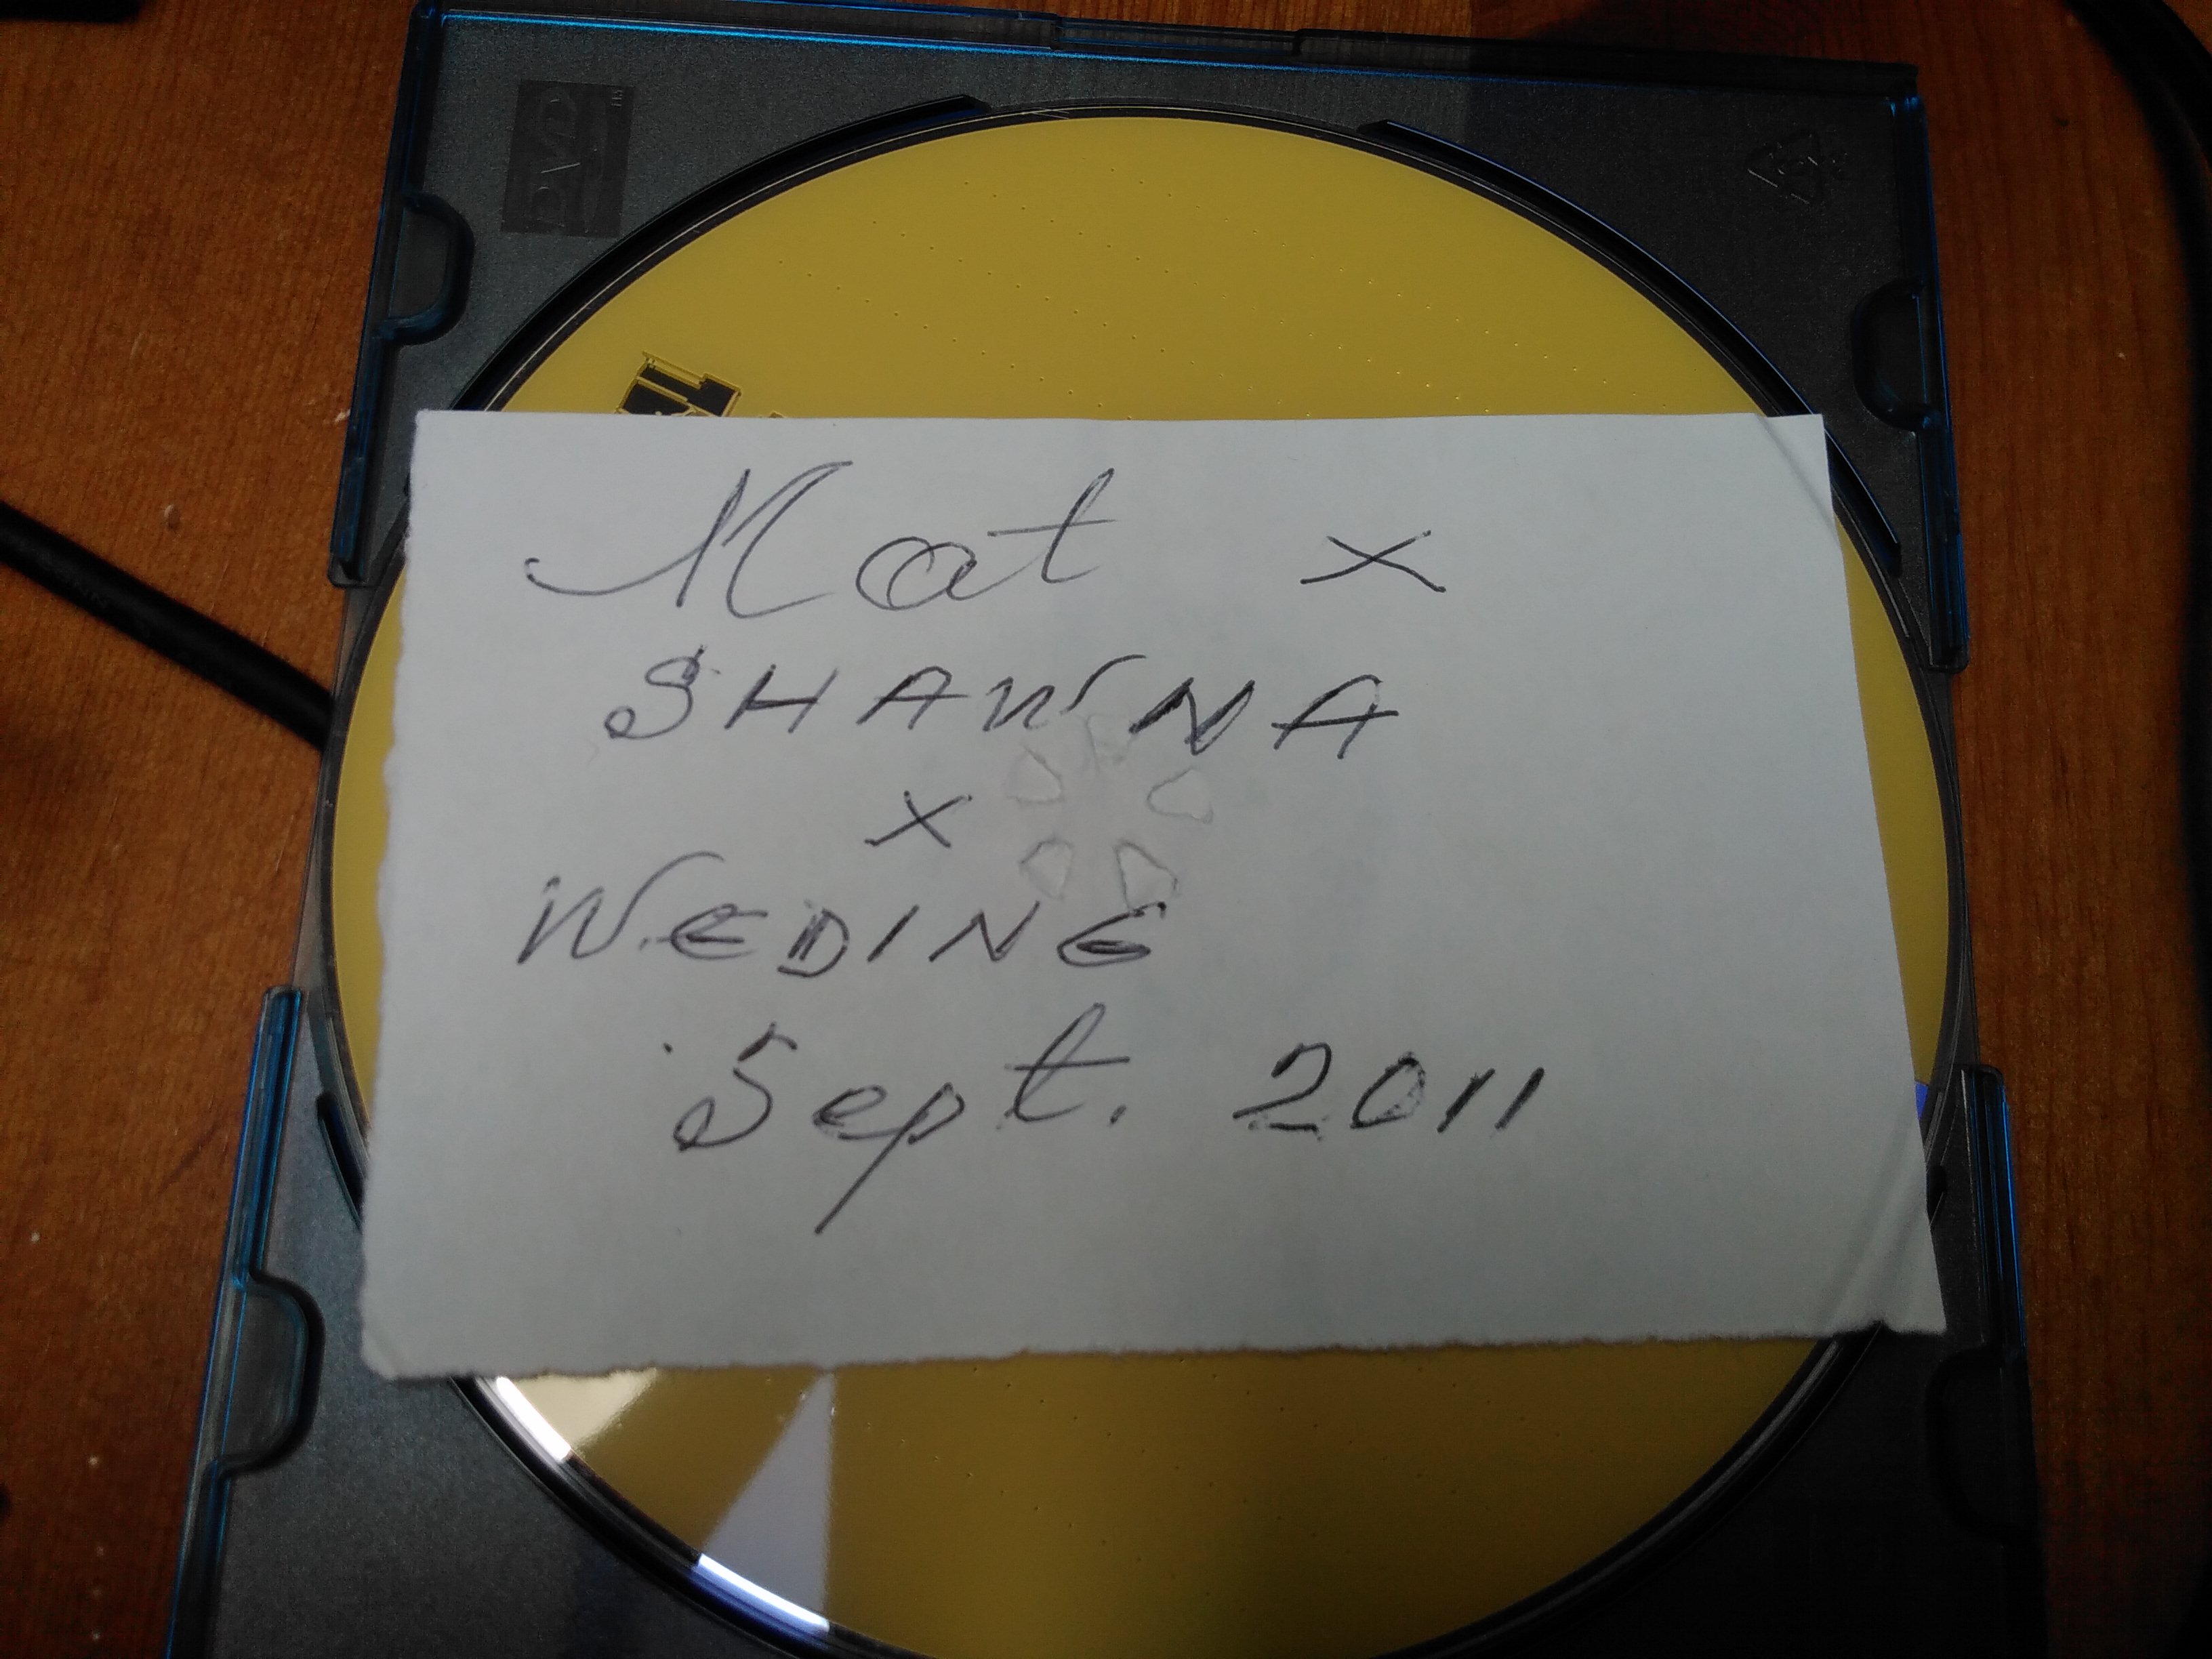 DVD
Mat x
SHAWNA
x
WEDING
Sept. 2011